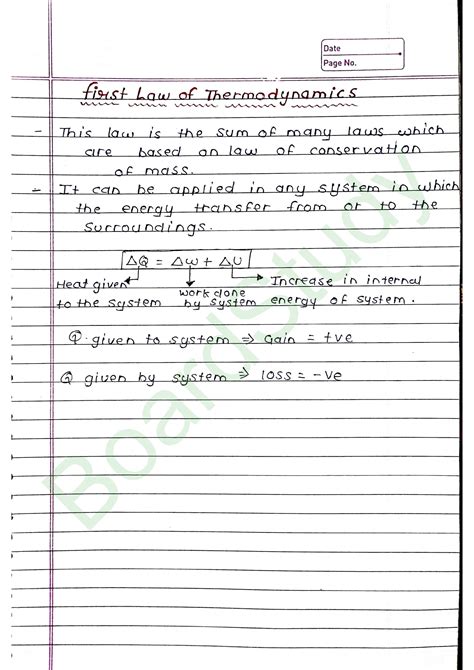 Date
Page No.
first Law of Thermodynamics
- This law is the sum of many laws which
are based on law of conservation
of mass.
- It can be applied in any system in which
the energy transfer from or to the
surroundings.
ΔQ = Δw + ΔU
Heat given work done Increase in internal
to the system by system energy of system.
Q given to system ⇒ Gain = +ve
Q given by system ⇒ loss = -ve
BoardStudy